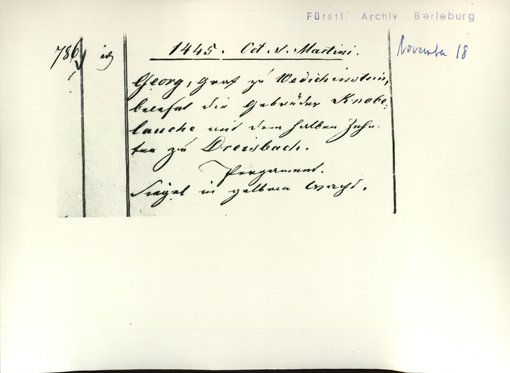 Fürstl. Archiv Berleburg
November 18
786
1445. Oct. v. Martini.
Georg, Graf zu Wedichinstein,
belehnt die Gebrüder Knobe-
lauche mit dem halben Zehn-
ten zu Dreisbach.
Pergament.
Siegel in gelbem Wachs.